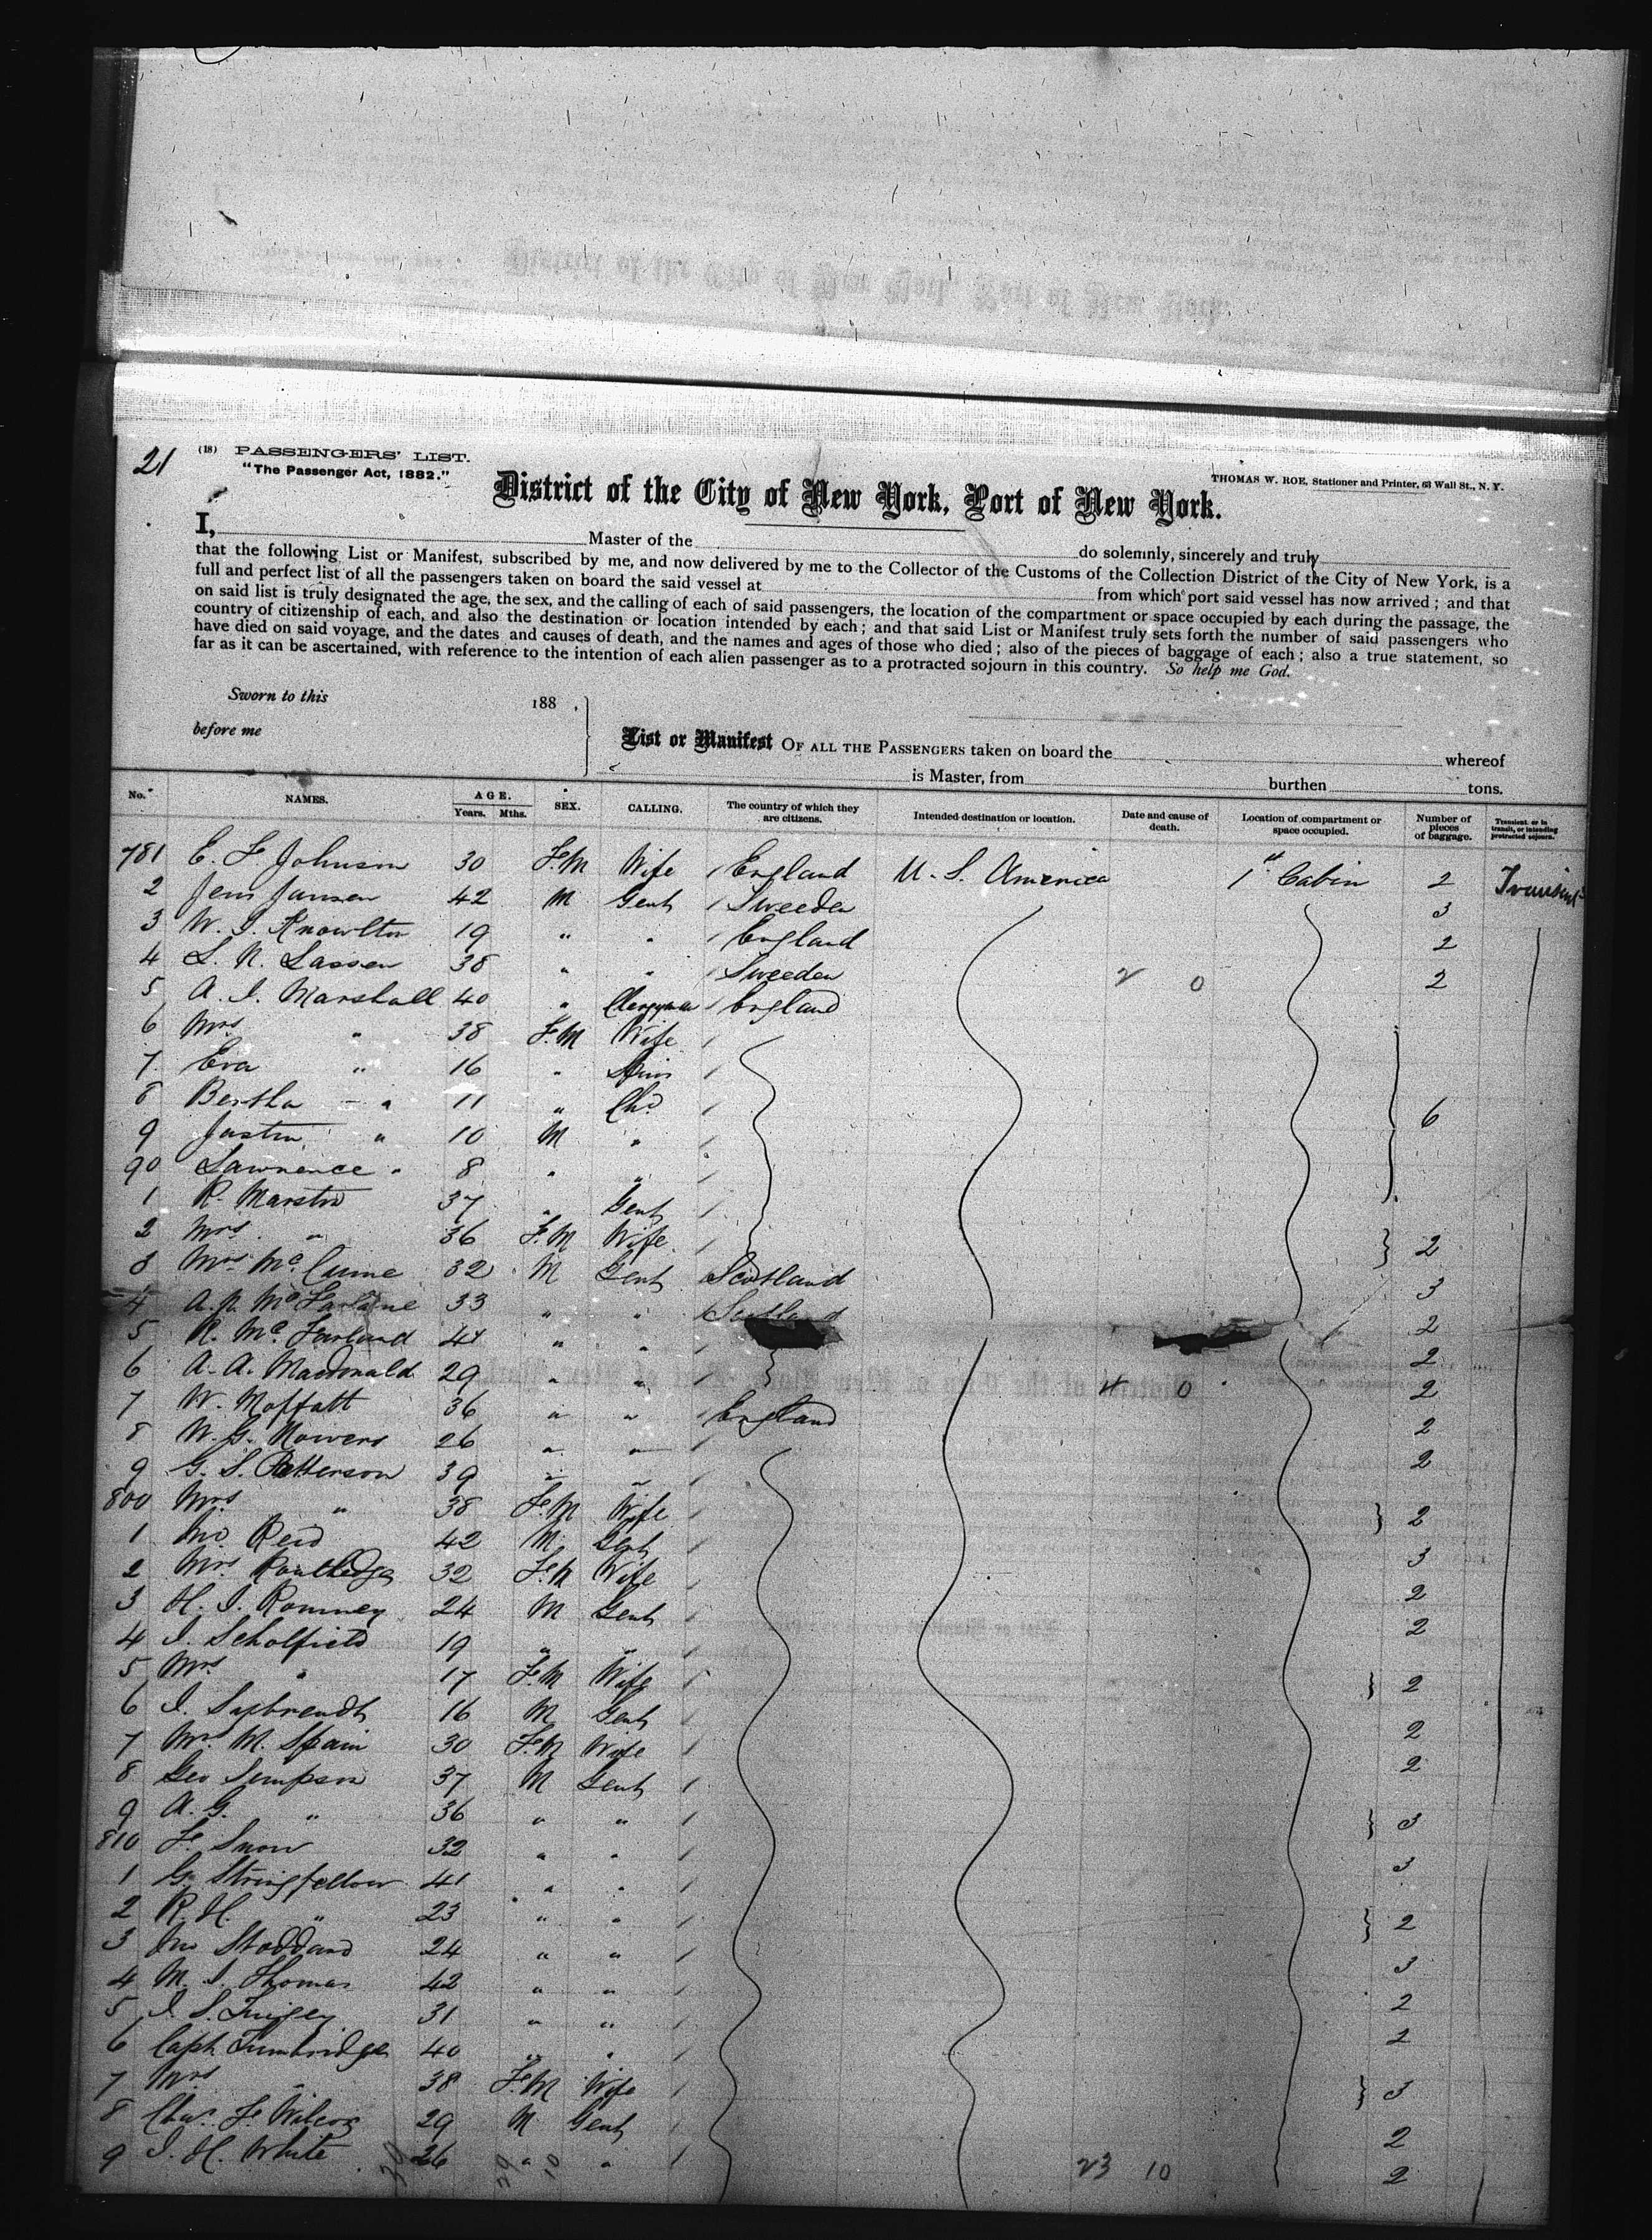 21
(18) PASSENGERS' LIST.
"The Passenger Act, 1882."
THOMAS W. ROE, Stationer and Printer, 63 Wall St., N. Y.
District of the City of New York, Port of New York.
I, Master of the do solemnly, sincerely and truly
that the following List or Manifest, subscribed by me, and now delivered by me to the Collector of the Customs of the Collection District of the City of New York, is a
full and perfect list of all the passengers taken on board the said vessel at from which port said vessel has now arrived; and that
on said list is truly designated the age, the sex, and the calling of each of said passengers, the location of the compartment or space occupied by each during the passage, the
country of citizenship of each, and also the destination or location intended by each; and that said List or Manifest truly sets forth the number of said passengers who
have died on said voyage, and the dates and causes of death, and the names and ages of those who died; also of the pieces of baggage of each; also a true statement, so
far as it can be ascertained, with reference to the intention of each alien passenger as to a protracted sojourn in this country. So help me God.
Sworn to this 188 .
before me
List or Manifest OF ALL THE PASSENGERS taken on board the whereof
is Master, from burthen tons.
No. NAMES. AGE. Years. Mths. SEX. CALLING. The country of which they are citizens. Intended destination or location. Date and cause of death. Location of compartment or space occupied. Number of pieces of baggage. Transient, or in transit, or intending protracted sojourn.
781 E. F Johnson 30 F.M Wife England U. S. America 1st Cabin 2 Transient
2 Jens Jansen 42 M Gent Sweeden 3
3 W. I. Knowlton 19 " " England 2
4 L. N. Lassen 38 " " Sweeden 2 0 2
5 A. I. Marshall 40 " Clergyman England
6 Mrs " 38 F.M Wife
7 Eva " 16 " Spins
8 Bertha " 11 " Chd 6
9 Justin " 10 M "
90 Lawrence " 8 " "
1 R. Marston 37 " Gent
2 Mrs " 36 F.M Wife 2
3 Mrs Mc 32 M Gent Scotland 3
4 A. Mc Farlane 33 " " Scotland 2
5 R. Mc Farland 41 " " 2
6 A. A. Macdonald 29 " " 4 0 2
7 W. Moffatt 36 " " England 2
8 W. G. Nowers 26 " " 2
9 G. S. Patterson 39 " "
800 Mrs " 38 F.M Wife 2
1 Jno Reid 42 M Gent 3
2 Mrs Routledge 32 F.M Wife 2
3 H. I. Romney 24 M Gent 2
4 I. Scholfield 19 " "
5 Mrs " 17 F.M Wife 2
6 I. 16 M Gent 2
7 Mrs M. Spain 30 F.M Wife 2
8 Geo Sempson 37 M Gent
9 A. G. " 36 " " 3
810 F. Snow 32 " " 3
1 G. Stringfellow 41 " "
2 R. H. " 23 " " 2
3 Jno Stoddard 24 " " 3
4 M. I. Thomas 42 " " 2
5 I. S. 31 " " 2
6 Capt Tumbridge 40 " "
7 Mrs " 38 F.M Wife 3
8 Chas. F. Wilcox 29 M Gent 2
9 I. H. White 26 " " 23 10 2
39 29 10